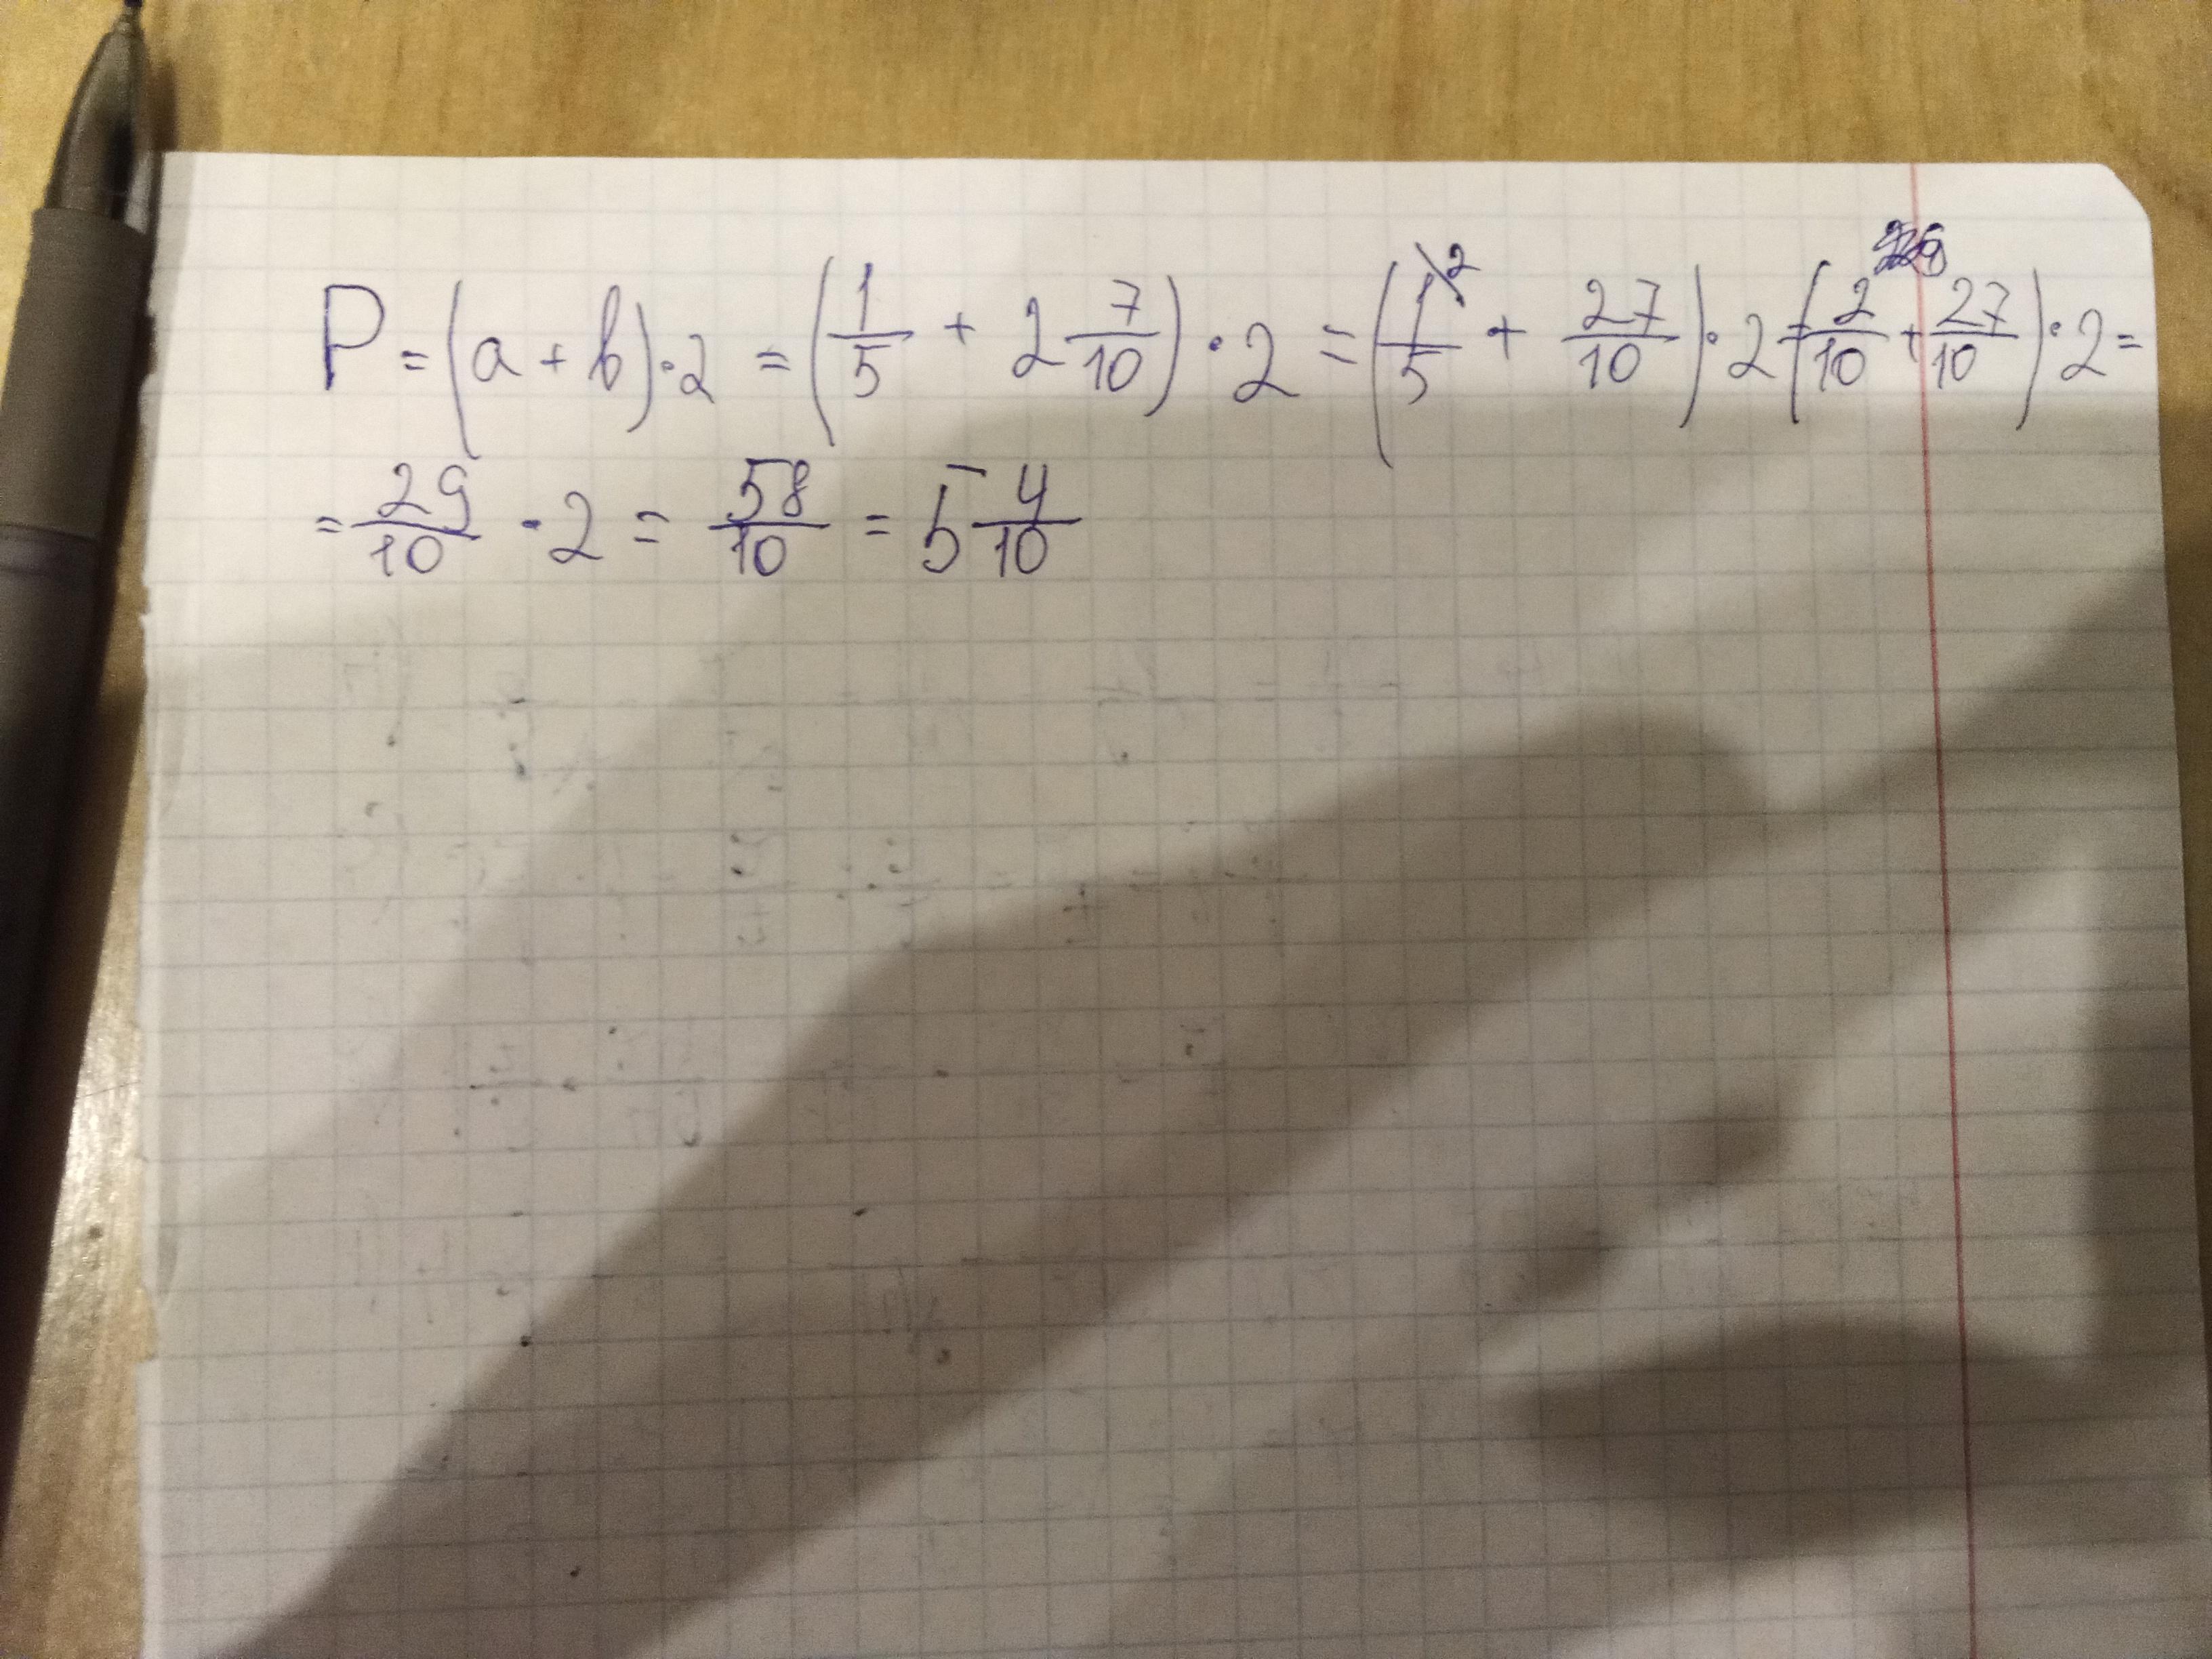 P = (a + b) · 2 = (1/5 + 2 7/10) · 2 = (1/5 ² + 27/10) · 2 = (2/10 + 27/10) · 2 =
= 29/10 · 2 = 58/10 = 5 4/10